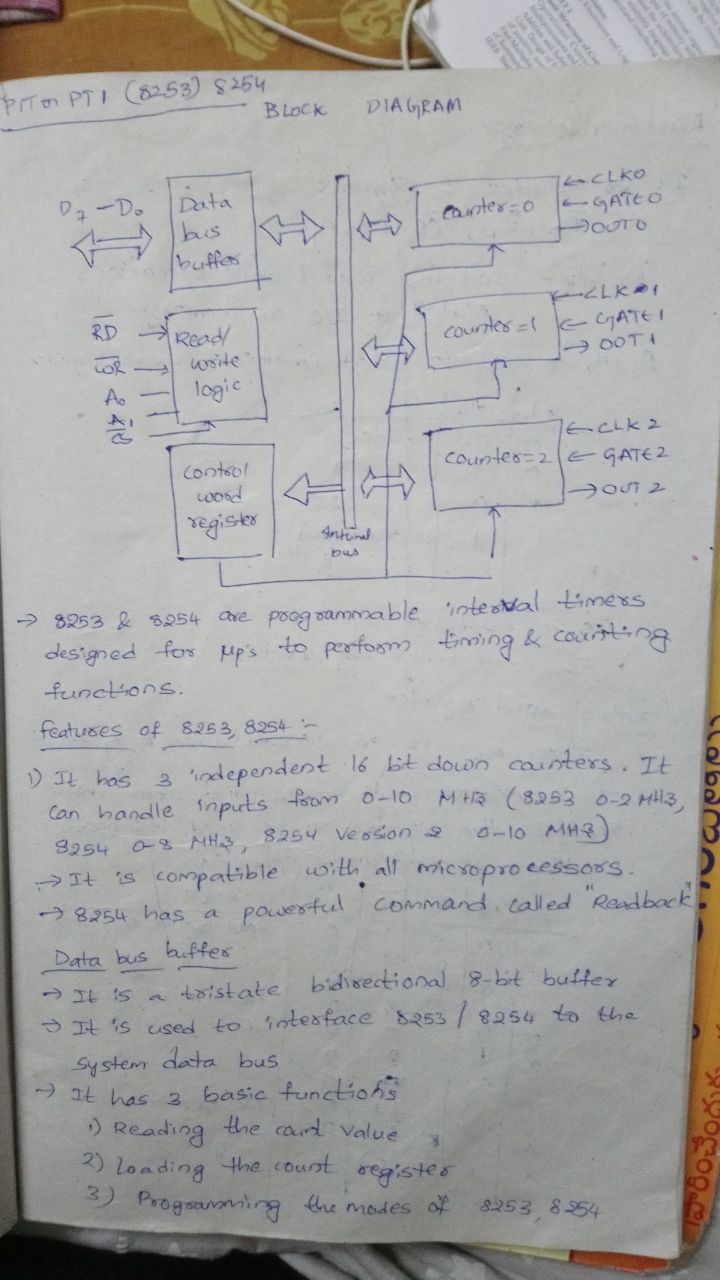 PIT or PTI (8253) 8254
BLOCK DIAGRAM
D7 - D0
Data
bus
buffer
counter=0
CLK0
GATE0
OUT0
RD
WR
A0
A1
CS
Read/
write
logic
counter=1
CLK 1
GATE1
OUT1
control
word
register
Internal
bus
counter=2
CLK 2
GATE2
OUT 2
→ 8253 & 8254 are programmable interval timers
designed for μp's to perform timing & counting
functions.
features of 8253, 8254 :-
1) It has 3 independent 16 bit down counters. It
can handle inputs from 0-10 MHz (8253 0-2 MHz,
8254 0-8 MHz, 8254 version 2 0-10 MHz)
→ It is compatible with all microprocessors.
→ 8254 has a powerful command called "Readback"
Data bus buffer
→ It is a tristate bidirectional 8-bit buffer
→ It is used to interface 8253 / 8254 to the
system data bus
→ It has 3 basic functions
1) Reading the count value
2) loading the count register
3) Programming the modes of 8253, 8254